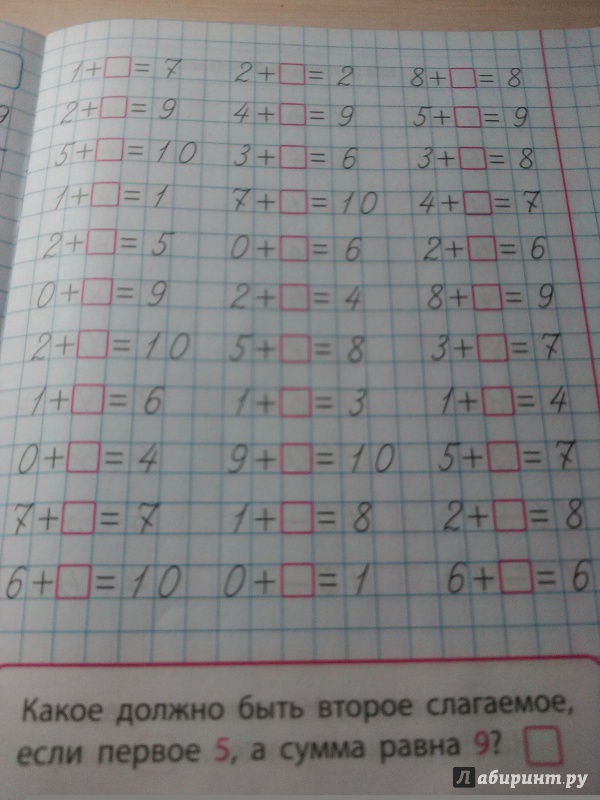 1+□=7 2+□=2 8+□=8
2+□=9 4+□=9 5+□=9
5+□=10 3+□=6 3+□=8
1+□=1 7+□=10 4+□=7
2+□=5 0+□=6 2+□=6
0+□=9 2+□=4 8+□=9
2+□=10 5+□=8 3+□=7
1+□=6 1+□=3 1+□=4
0+□=4 9+□=10 5+□=7
7+□=7 1+□=8 2+□=8
6+□=10 0+□=1 6+□=6
Какое должно быть второе слагаемое,
если первое 5, а сумма равна 9? □
Лабиринт.ру